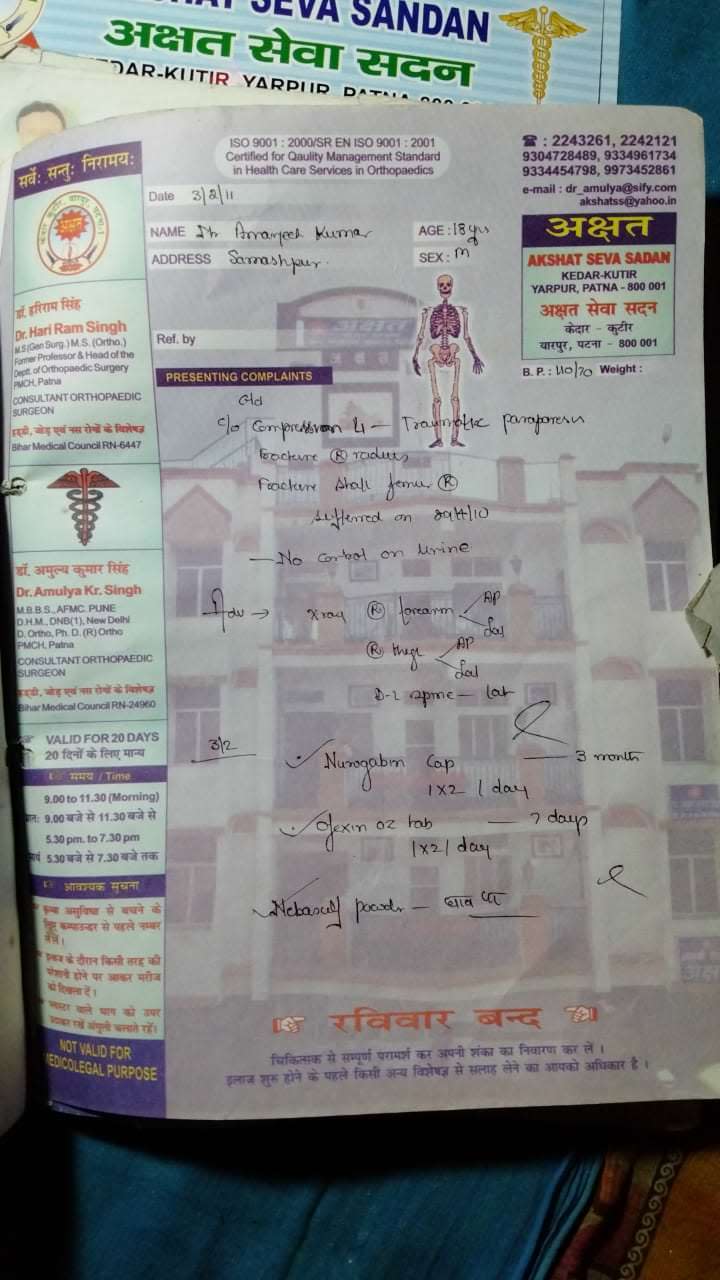 SHAT SEVA SANDAN
अक्षत सेवा सदन
KEDAR-KUTIR, YARPUR, PATNA-800
सर्वे: सन्तु: निरामय:
ISO 9001 : 2000/SR EN ISO 9001 : 2001
Certified for Qaulity Management Standard
in Health Care Services in Orthopaedics
☎ : 2243261, 2242121
9304728489, 9334961734
9334454798, 9973452861
e-mail : dr_amulya@sify.com
akshatss@yahoo.in
Date 3/2/11
NAME Amarjeet Kumar
AGE : 18 yrs
ADDRESS Samastipur.
SEX : M
अक्षत
AKSHAT SEVA SADAN
KEDAR-KUTIR
YARPUR, PATNA - 800 001
अक्षत सेवा सदन
केदार - कुटीर
यारपुर, पटना - 800 001
Ref. by
B. P. : 110/70 Weight :
PRESENTING COMPLAINTS
डॉ. हरिराम सिंह
Dr. Hari Ram Singh
M.S (Gen Surg.) M.S. (Ortho.)
Former Professor & Head of the
Deptt. of Orthopaedic Surgery
PMCH, Patna
CONSULTANT ORTHOPAEDIC
SURGEON
हड्डी, जोड़ एवं नस रोगों के विशेषज्ञ
Bihar Medical Council RN-6447
डॉ. अमुल्य कुमार सिंह
Dr. Amulya Kr. Singh
M.B.B.S., AFMC. PUNE
D.H.M., DNB(1), New Delhi
D. Ortho, Ph. D. (R) Ortho
PMCH, Patna
CONSULTANT ORTHOPAEDIC
SURGEON
हड्डी, जोड़ एवं नस रोगों के विशेषज्ञ
Bihar Medical Council RN-24960
VALID FOR 20 DAYS
20 दिनों के लिए मान्य
समय / Time
9.00 to 11.30 (Morning)
9.00 बजे से 11.30 बजे से
5.30 pm. to 7.30 pm
5.30 बजे से 7.30 बजे तक
आवश्यक सुचना
कृप्या असुविधा से बचने के
लिए कम्पाउन्डर से पहले नम्बर
ले लें।
इलाज के दौरान किसी तरह की
परेशानी होने पर आकर मरीज
को दिखला दें।
प्लास्टर वाले भाग को उपर
उठाकर रखें अंगुली चलाते रहें।
NOT VALID FOR
MEDICOLEGAL PURPOSE
c/o Compression — Traumatic paraparesis
Fracture Ⓡ radius
Fracture shaft femur Ⓡ
sufferred on
— No control on urine
Adv → Xray Ⓡ forearm AP
Lat
Ⓡ thigh AP
Lat
spine — Lat
3/2
Nurogabin Cap — 3 month
1 X 2 / day
Ofexin OZ tab — 7 days
1 X 2 / day
Nebasulf powder — घाव पर
रविवार बन्द
चिकित्सक से सम्पूर्ण परामर्श कर अपनी शंका का निवारण कर लें ।
इलाज शुरू होने के पहले किसी अन्य विशेषज्ञ से सलाह लेने का आपको अधिकार है ।